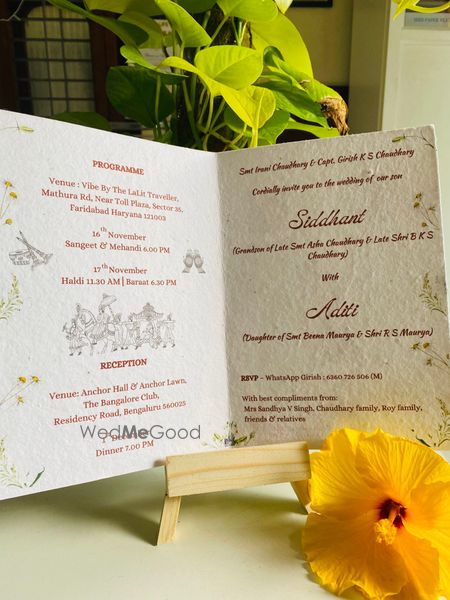 PROGRAMME
Venue : Vibe By The LaLit Traveller,
Mathura Rd, Near Toll Plaza, Sector 35,
Faridabad Haryana 121003
16th November
Sangeet & Mehandi 6.00 PM
17th November
Haldi 11.30 AM | Baraat 6.30 PM
RECEPTION
Venue: Anchor Hall & Anchor Lawn,
The Bangalore Club,
Residency Road, Bengaluru 560025
Dinner 7.00 PM
WedMeGood
Smt Irani Chaudhary & Capt. Girish K S Chaudhary
Cordially invite you to the wedding of our son
Siddhant
(Grandson of Late Smt Asha Chaudhary & Late Shri B K S
Chaudhary)
With
Aditi
(Daughter of Smt Beena Maurya & Shri R S Maurya)
RSVP – WhatsApp Girish : 6360 726 506 (M)
With best compliments from:
Mrs Sandhya V Singh, Chaudhary family, Roy family,
friends & relatives